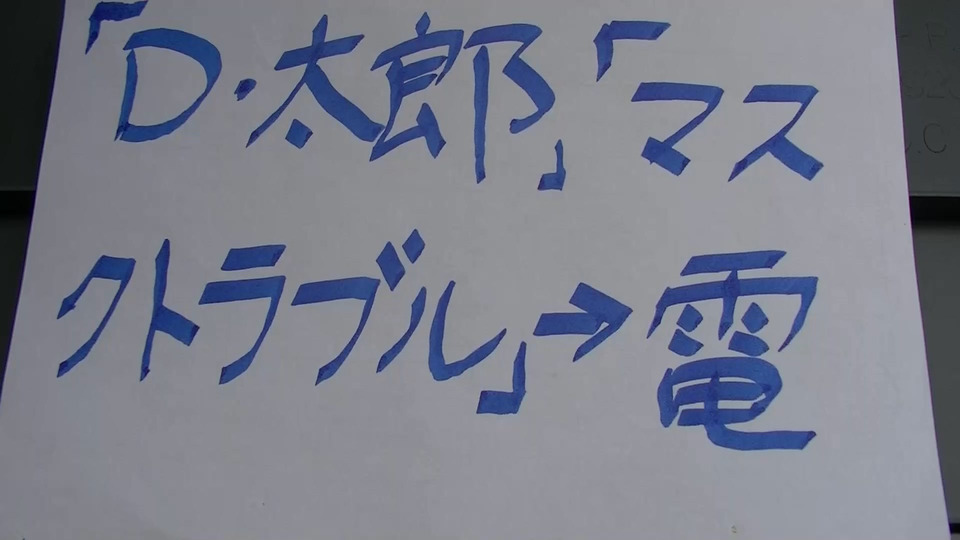 「D・太郎」「マス
クトラブル」→電